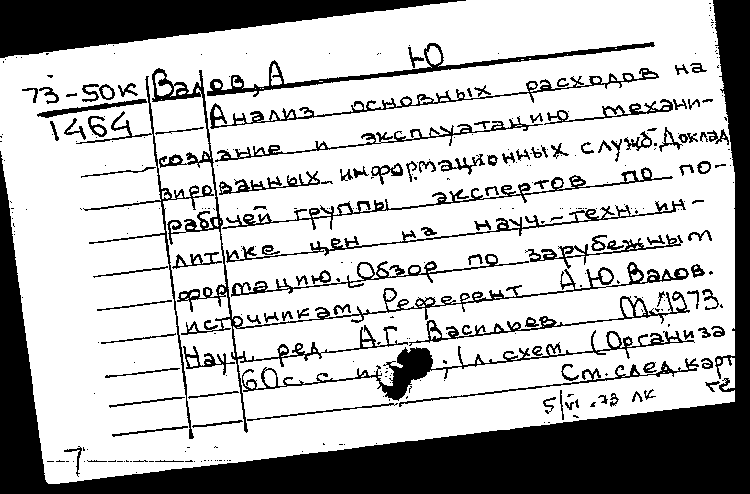 73-50к Валов, А Ю
1464 Анализ основных расходов на
создание и эксплуатацию механи-
зированных информационных служб. Доклад
рабочей группы экспертов по по-
литике цен на науч.-техн. ин-
формацию. [Обзор по зарубежным
источникам]. Референт А.Ю. Валов.
Науч. ред. А.Г. Васильев. М., 1973.
60 с. с ил.; 1 л. схем. (Организа-
См. след. карт
5/VI-73 ЛК
7